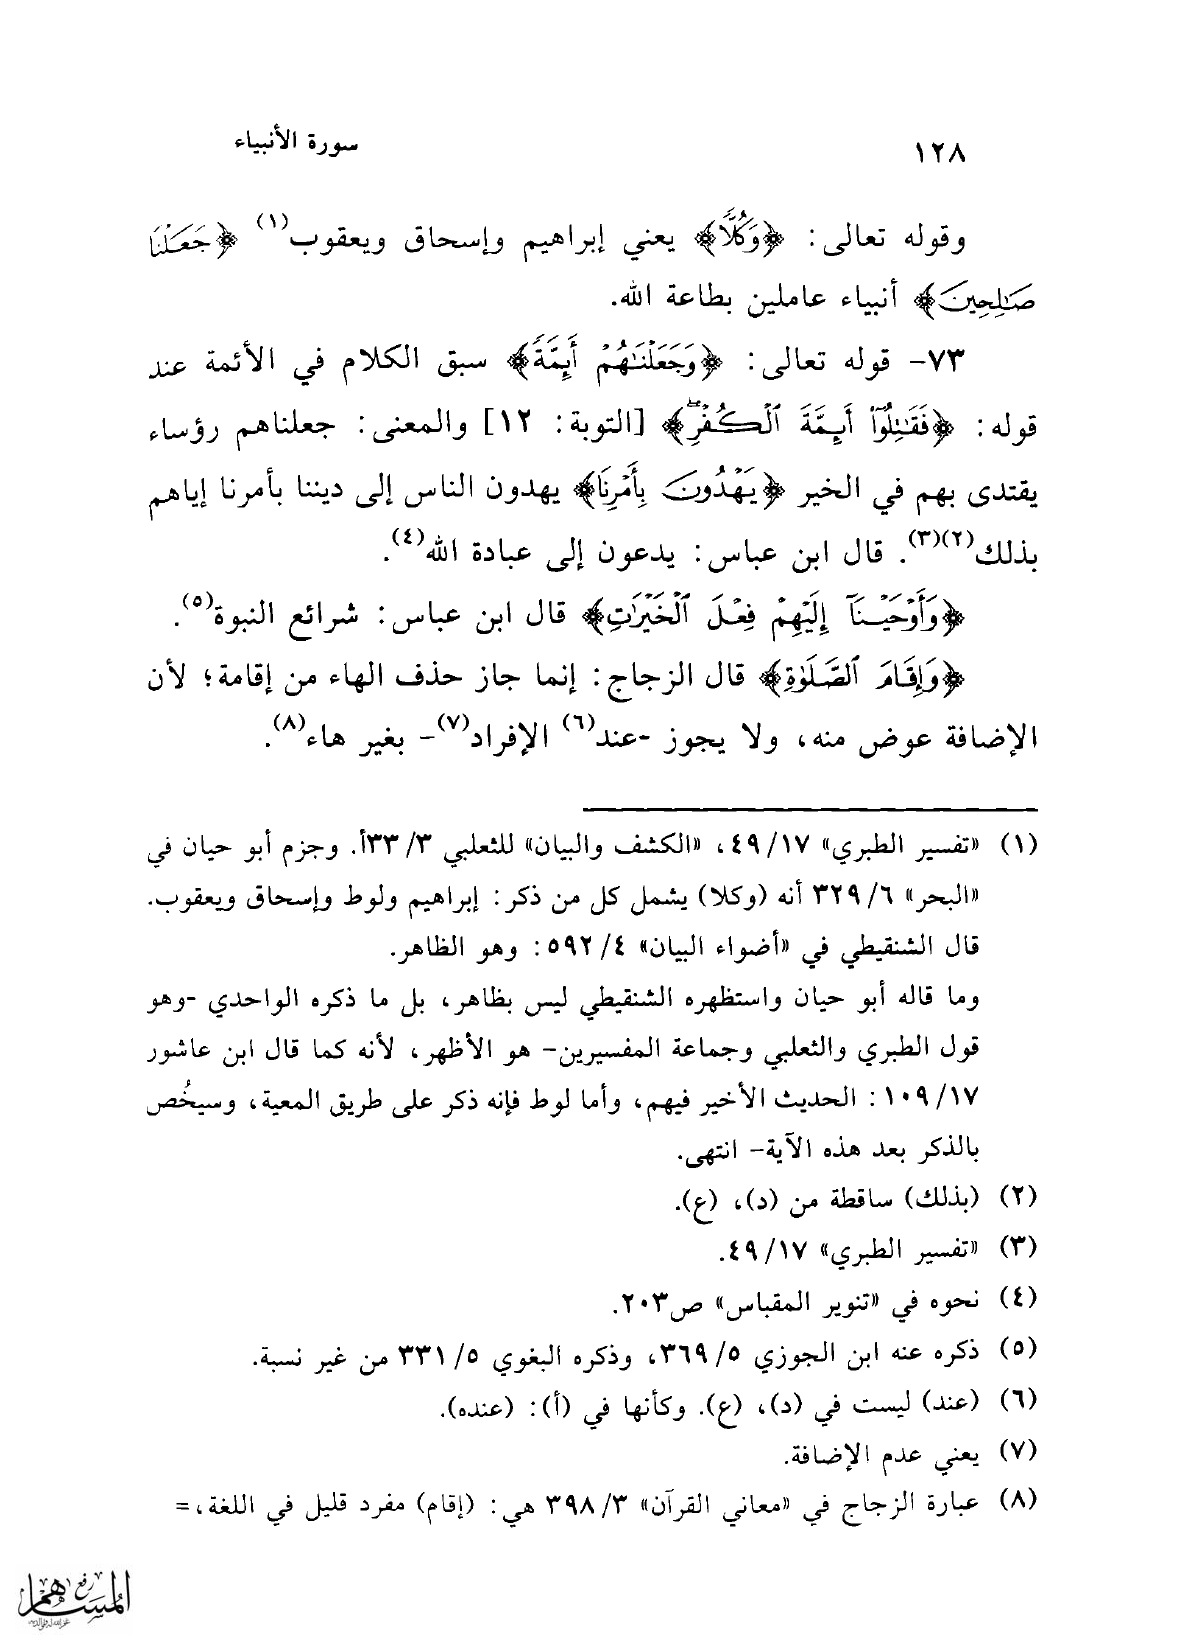 ١٢٨ سورة الأنبياء
وقوله تعالى: ﴿وَكُلًّا﴾ يعني إبراهيم وإسحاق ويعقوب(١) ﴿جَعَلْنَا
صَالِحِينَ﴾ أنبياء عاملين بطاعة الله.
٧٣- قوله تعالى: ﴿وَجَعَلْنَاهُمْ أَئِمَّةً﴾ سبق الكلام في الأئمة عند
قوله: ﴿فَقَاتِلُوٓا۟ أَئِمَّةَ ٱلْكُفْرِ﴾ [التوبة: ١٢] والمعنى: جعلناهم رؤساء
يقتدى بهم في الخير ﴿يَهْدُونَ بِأَمْرِنَا﴾ يهدون الناس إلى ديننا بأمرنا إياهم
بذلك(٢)(٣). قال ابن عباس: يدعون إلى عبادة الله(٤).
﴿وَأَوْحَيْنَآ إِلَيْهِمْ فِعْلَ ٱلْخَيْرَٰتِ﴾ قال ابن عباس: شرائع النبوة(٥).
﴿وَإِقَامَ ٱلصَّلَوٰةِ﴾ قال الزجاج: إنما جاز حذف الهاء من إقامة؛ لأن
الإضافة عوض منه، ولا يجوز -عند(٦) الإفراد(٧)- بغير هاء(٨).
(١) «تفسير الطبري» ١٧/ ٤٩، «الكشف والبيان» للثعلبي ٣/ ٣٣أ. وجزم أبو حيان في
«البحر» ٦/ ٣٢٩ أنه (وكلا) يشمل كل من ذكر: إبراهيم ولوط وإسحاق ويعقوب.
قال الشنقيطي في «أضواء البيان» ٤/ ٥٩٢: وهو الظاهر.
وما قاله أبو حيان واستظهره الشنقيطي ليس بظاهر، بل ما ذكره الواحدي -وهو
قول الطبري والثعلبي وجماعة المفسيرين- هو الأظهر، لأنه كما قال ابن عاشور
١٧/ ١٠٩: الحديث الأخير فيهم، وأما لوط فإنه ذكر على طريق المعية، وسيخُص
بالذكر بعد هذه الآية- انتهى.
(٢) (بذلك) ساقطة من (د)، (ع).
(٣) «تفسير الطبري» ١٧/ ٤٩.
(٤) نحوه في «تنوير المقباس» ص٢٠٣.
(٥) ذكره عنه ابن الجوزي ٥/ ٣٦٩، وذكره البغوي ٥/ ٣٣١ من غير نسبة.
(٦) (عند) ليست في (د)، (ع). وكأنها في (أ): (عنده).
(٧) يعني عدم الإضافة.
(٨) عبارة الزجاج في «معاني القرآن» ٣/ ٣٩٨ هي: (إقام) مفرد قليل في اللغة،=